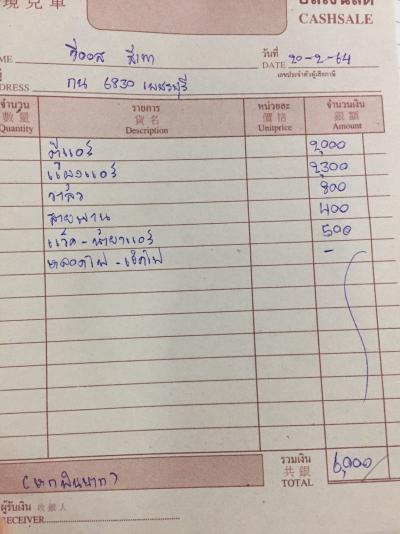 現兌單
บิลเงินสด
CASHSALE
NAME วีออส สีเทา วันที่ 20-2-64
DATE
เลขประจำตัวผู้เสียภาษี
ที่
ADDRESS กน 6830 เพชรบุรี
จำนวน รายการ หน่วยละ จำนวนเงิน
數量 貨名 價格 銀額
Quantity Description Unitprice Amount
ตู้แอร์ 2,000
แผงแอร์ 2,300
วาล์ว 800
สายพาน 400
แว๊ค - น้ำยาแอร์ 500
หลอดไฟ - เช็คไฟ -
รวมเงิน
共銀
TOTAL 6,000
(หกพันบาท)
ผู้รับเงิน 收銀人
RECEIVER